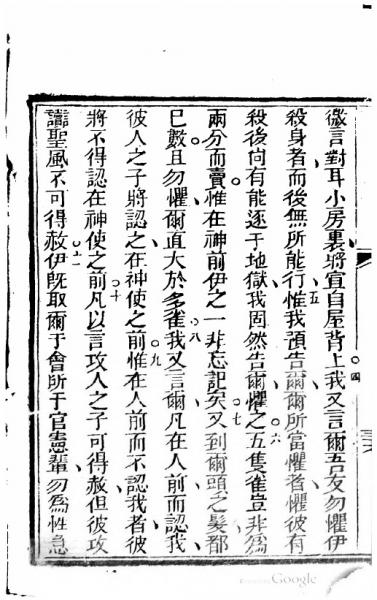 微言對耳小房裏將宣自屋背上我又言爾吾友勿懼伊
殺身者而後無所能行惟我預告爾爾所當懼者懼彼有
殺後尚有能逐于地獄我固然告爾懼之五隻雀豈非為
兩分而賣惟在神前伊之一非忘記矣又到爾頭之髮都
已數且勿懼爾直大於多雀我又言爾凡在人前而認我
彼人之子將認之在神使之前惟在人前而不認我者彼
將不得認在神使之前凡以言攻人之子可得赦但彼攻
讟聖風不可得赦伊既取爾于會所于官憲輩勿為性急
四
五
六
七
八
九
十
十一
Google